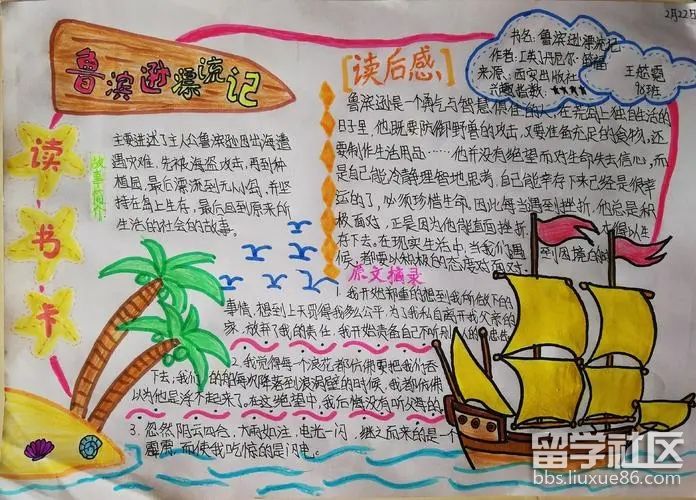 鲁滨逊漂流记
读书卡
故事简介
主要讲述了主人公鲁滨逊因出海遭
遇灾难,先被海盗攻击,再到种
植园,最后漂流到无人岛,并坚
持在岛上生存,最后回到原来所
生活的社会的故事。
[读后感]
鲁滨逊是一个勇气与智慧俱佳的人,在荒岛上独自生活的
日子里,他既要防御野兽的攻击,又要准备充足的食物,还
要制作生活用品……他并没有绝望而对生命失去信心,而
是自己能冷静理智地思考,自己能幸存下来已经是很幸
运的了,必须珍惜生命,因此每当遇到挫折,他总是积
极面对,正是因为他能直面挫折,在得以生
存下去。在现实生活中,当我们遇到困
候,都要以积极的态度对面对
2月22日
书名:鲁滨逊漂流记
作者:[英]丹尼尔·笛福
来源:西安出版社
兴趣指数:★★★★
96班
原文摘录
1.我开始郑重的想到我所做下的
事情,想到上天罚得我多么公平,为了我私自离开我父亲的
家,放弃了我的责任,我开始责备自己不听
2.我觉得每个浪花都仿佛要把我们吞
下去,我们的船每次降落到浪涡里的时候,我都仿佛
以为他是浮不起来了。在这绝望中,我后悔没有听父母的
3.忽然阴云四合,大雨如注,电光一闪,继之而来的是一个
霹雳,而使我吃惊的是闪电。
留学社区
bbs.liuxue86.com